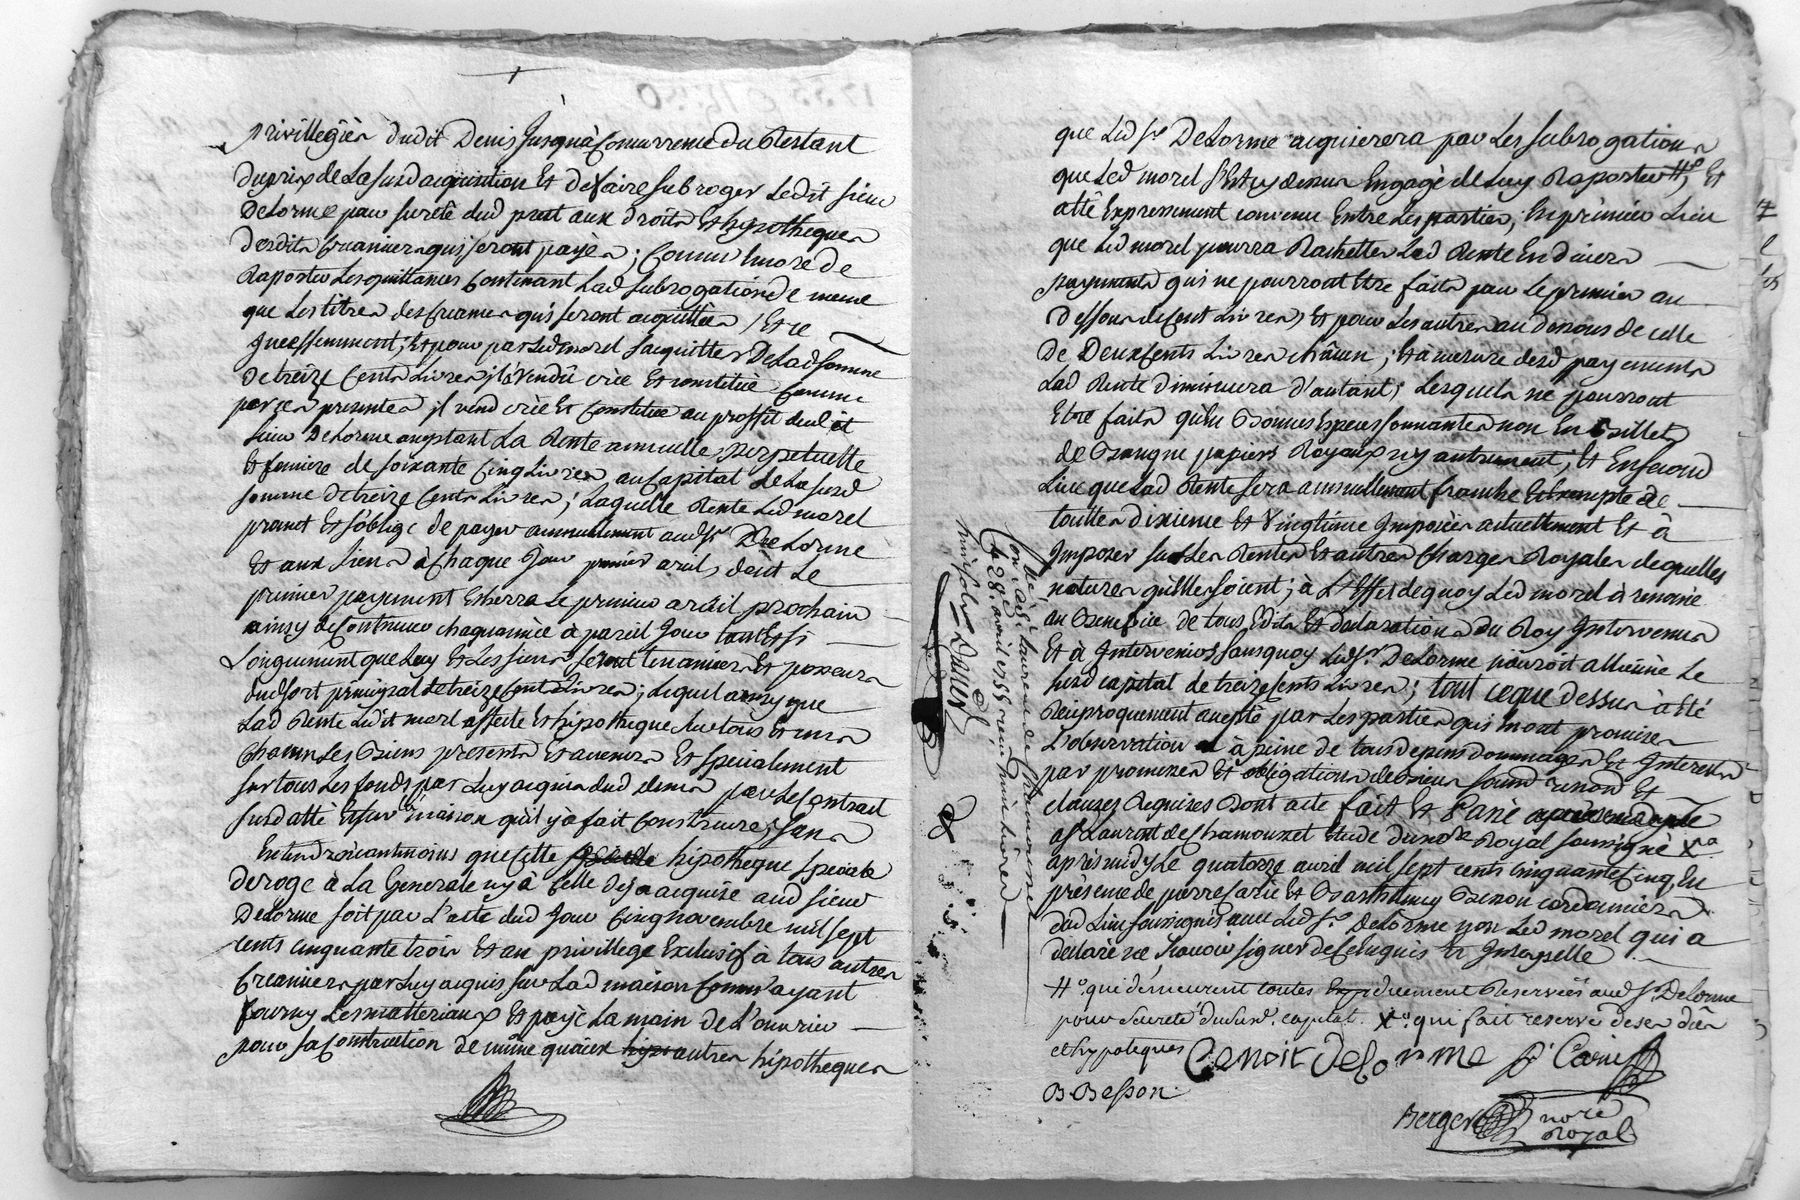 privillegiés dudit Denis Jusqu'a Concurrence du Restant
du prix de La susd acquisition Et de faire subroger Ledit sieur
DeLorme pour sureté dud pret aux droits Et hipotheques
desdits Creanciers qui seront payés ; Comm' Encore de
Raporter Les quittances Contenant Lad subrogation de meme
que Les titres des Creances qui seront acquittées / Et ce
Incessemment ; Et pour par Led morel s'acquitter De Lad somme
De treize Cents Livres il a vendû créé Et constitué Comme
par ces presentes il vend crée Et Constitue au proffit dudit
sieur DeLorme acceptant La Rente annuelle, perpetuelle
Et fonciere de soixante Cinq Livres au Capital de La susd
somme de treize Cents Livres ; Laquelle Rente Led morel
promet Et s'oblige de payer annuellement aud Sr DeLorme
Et aux siens à Chaque Jour premier avril, dont Le
primier payement Escherra Le primier avril prochain
ainsy de Continuer chaqu'année à pareil Jour tant Et si
Longuement que Luy Et Les siens seront tenanciers Et posseurs
dud sort principal de treize Cents Livres ; Lequel ainsy que
Lad Rente Ledit morel affecte Et hipotheque sur tous Et uns
Chacun Les Biens presents Et avenirs Et specialement
sur tous Les fonds par Luy acquis dud denis par Le Contract
susd atté Et sur la maison qu'il y à fait Construire, sans
Entendre neantmoins que Cette hipotheque speciale
deroge à La Generale ny à Celle deja acquise aud sieur
DeLorme soit par L'acte dud Jour Cinq novembre mil sept
cents cinquante trois Et au privillege Exclusif à tous autres
Creanciers par Luy acquis sur Lad maison Comm' ayant
fourny Les matteriaux Et payé La main de L'ouvrier
pour sa Construction de même qu'aux autres hipotheques
que Led Sr DeLorme acquierera par Les subrogations
que Led morel s'Est cy dessus Engagé de Luy Raporter #o, Et
a été Expressement convenu Entre Les parties, En prémier Lieu
que Led morel pourra Rachetter Lad Rente En divers
payements qui ne pourront Etre faits pour Le premier au
dessous de Cent Livres, Et pour Les autres au dessous de celle
De Deux Cents Livres châcun ; Et à mesure desd payements
Lad Rente diminuera d'autant ; Lesquels ne pourront
Etre faits qu'En Bonnes Especes sonnantes non En Billets
de Banque papiers Royaux ny autrement ; Et En second
Lieu que Lad Rente sera annuellement franche Et Exempte de
touttes dixieme Et Vingtieme Imposées actuellement Et à
Imposer sur Les Rentes Et autres Charges Royales de quelles
natures qu'Elles soient ; à L'Effet de quoy Led morel à renoncé
au Benefice de tous Edits Et declarations du Roy Intervenus
Et à Intervenir sans quoy Led Sr DeLorme n'auroit alliéné Le
susd capital de treize Cents Livres ; tout ce que dessus à été
Reciproquement accepté par Les parties qui en ont promise
L'observation à peine de tous depens dommages Et Interests
par promesses Et obligations de Biens soumd renond Et
clauses Requises Dont acte fait Et Passé
a St Laurent de Chamousset Etude du nore Royal soussigné X.a
aprés midy Le quatorze avril mil sept cents cinquante Cinq, En
présence de pierre Carié Et Barthelemy Besson cordonniers
dud Lieu soussignés avec Led Sr DeLorme non Led morel qui a
declaré ne sçavoir signer de Ce Enquis Et Interpellé
#o. que demeurent toutes Expressement Reservées aud Sr DeLorme
pour sureté dususd. capital. X.a qui fait reserve de ses dits
et hypoteques Benoit Delorme P. Carié
B. Besson
Berger nore
Royal
Con.lé à St Laurent de Chamousset
Le 28e. avril 1755 reçu huit livres